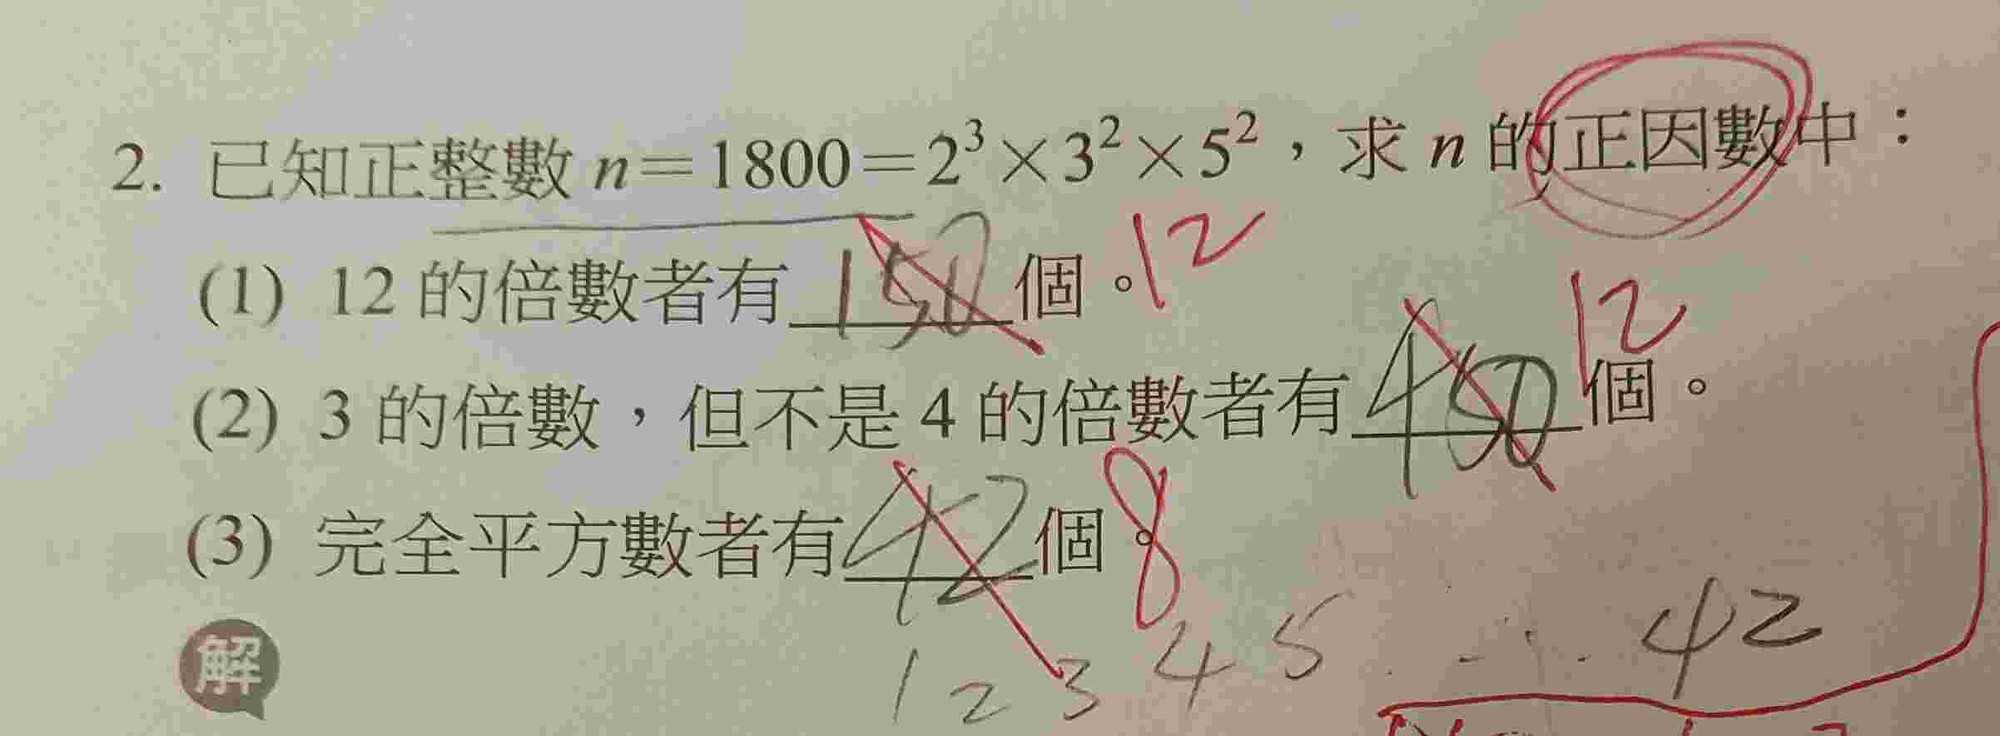 2. 已知正整數 n=1800=2³×3²×5²，求 n 的正因數中：
(1) 12 的倍數者有 150 個。12
(2) 3 的倍數，但不是 4 的倍數者有 450 個。12
(3) 完全平方數者有 42 個。8
解
1 2 3 4 5 ..... 42